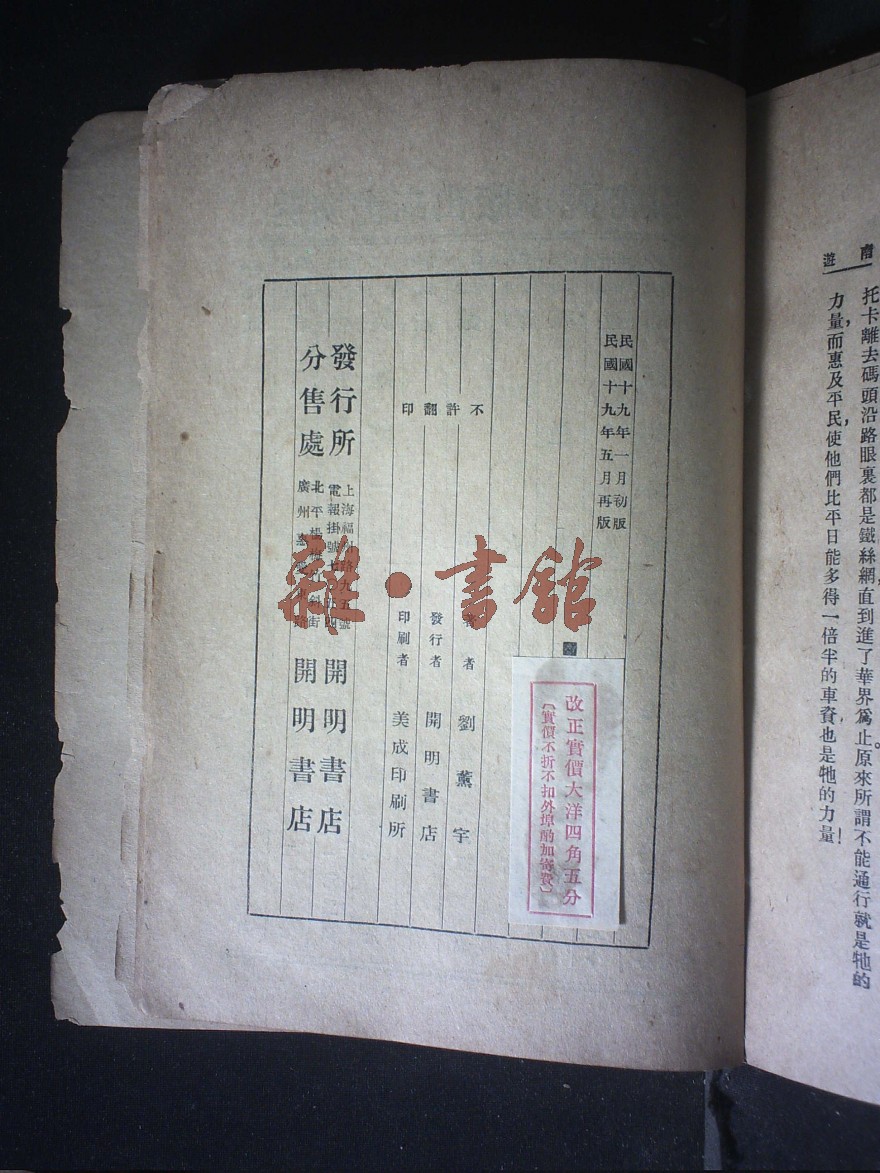 南
遊
托卡離去碼頭沿路眼裏都是鐵絲網，直到進了華界爲止。原來所謂不能通行就是牠的
力量，而惠及平民，使他們比平日能多得一倍半的車資也是牠的力量！
民國十九年一月初版
民國十九年五月再版
改正實價大洋四角五分
〔實價不折不扣外埠酌加寄費〕
不許翻印
著者 劉薰宇
發行者 開明書店
印刷者 美成印刷所
發行所 上海福州路九五號 開明書店
電報掛號
分售處 北平楊梅竹斜街 開明書店
廣州惠愛東路
雜·書館